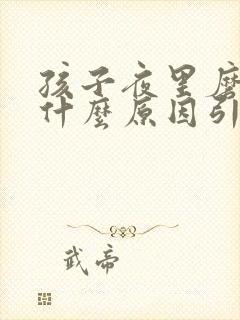 孩子夜里磨
什麼原因引
武帝